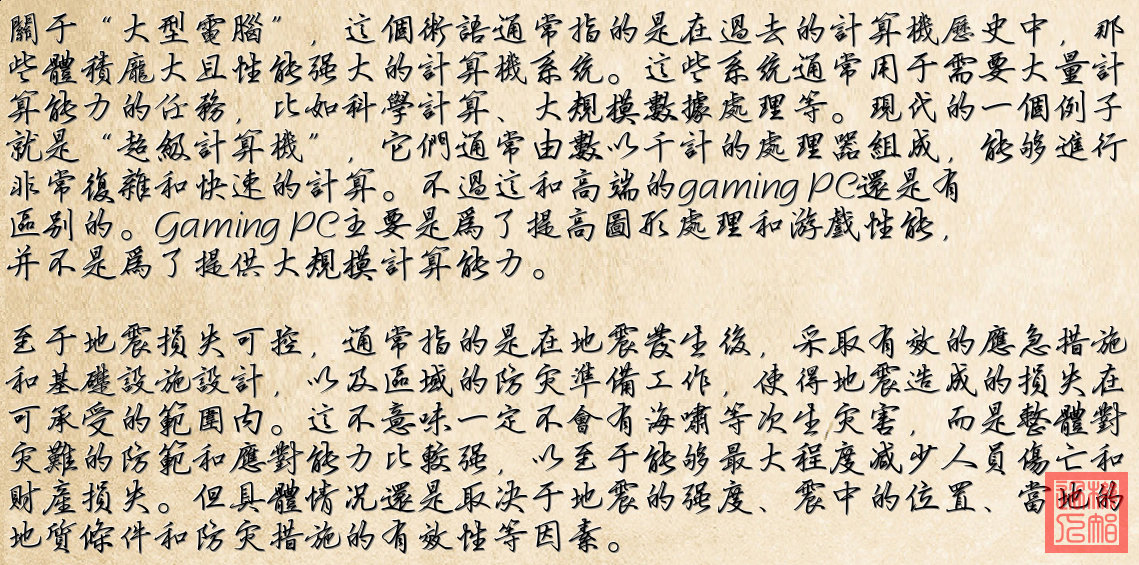 關于“大型電腦”，這個術語通常指的是在過去的計算機歷史中，那
些體積龐大且性能强大的計算機系統。這些系統通常用于需要大量計
算能力的任務，比如科學計算、大規模數據處理等。現代的一個例子
就是“超級計算機”，它們通常由數以千計的處理器組成，能够進行
非常復雜和快速的計算。不過這和高端的gaming PC還是有
區别的。Gaming PC主要是爲了提高圖形處理和游戲性能，
并不是爲了提供大規模計算能力。
至于地震損失可控，通常指的是在地震發生後，采取有效的應急措施
和基礎設施設計，以及區域的防灾準備工作，使得地震造成的損失在
可承受的範圍内。這不意味一定不會有海嘯等次生灾害，而是整體對
灾難的防範和應對能力比較强，以至于能够最大程度减少人員傷亡和
財產損失。但具體情况還是取决于地震的强度、震中的位置、當地的
地質條件和防灾措施的有效性等因素。